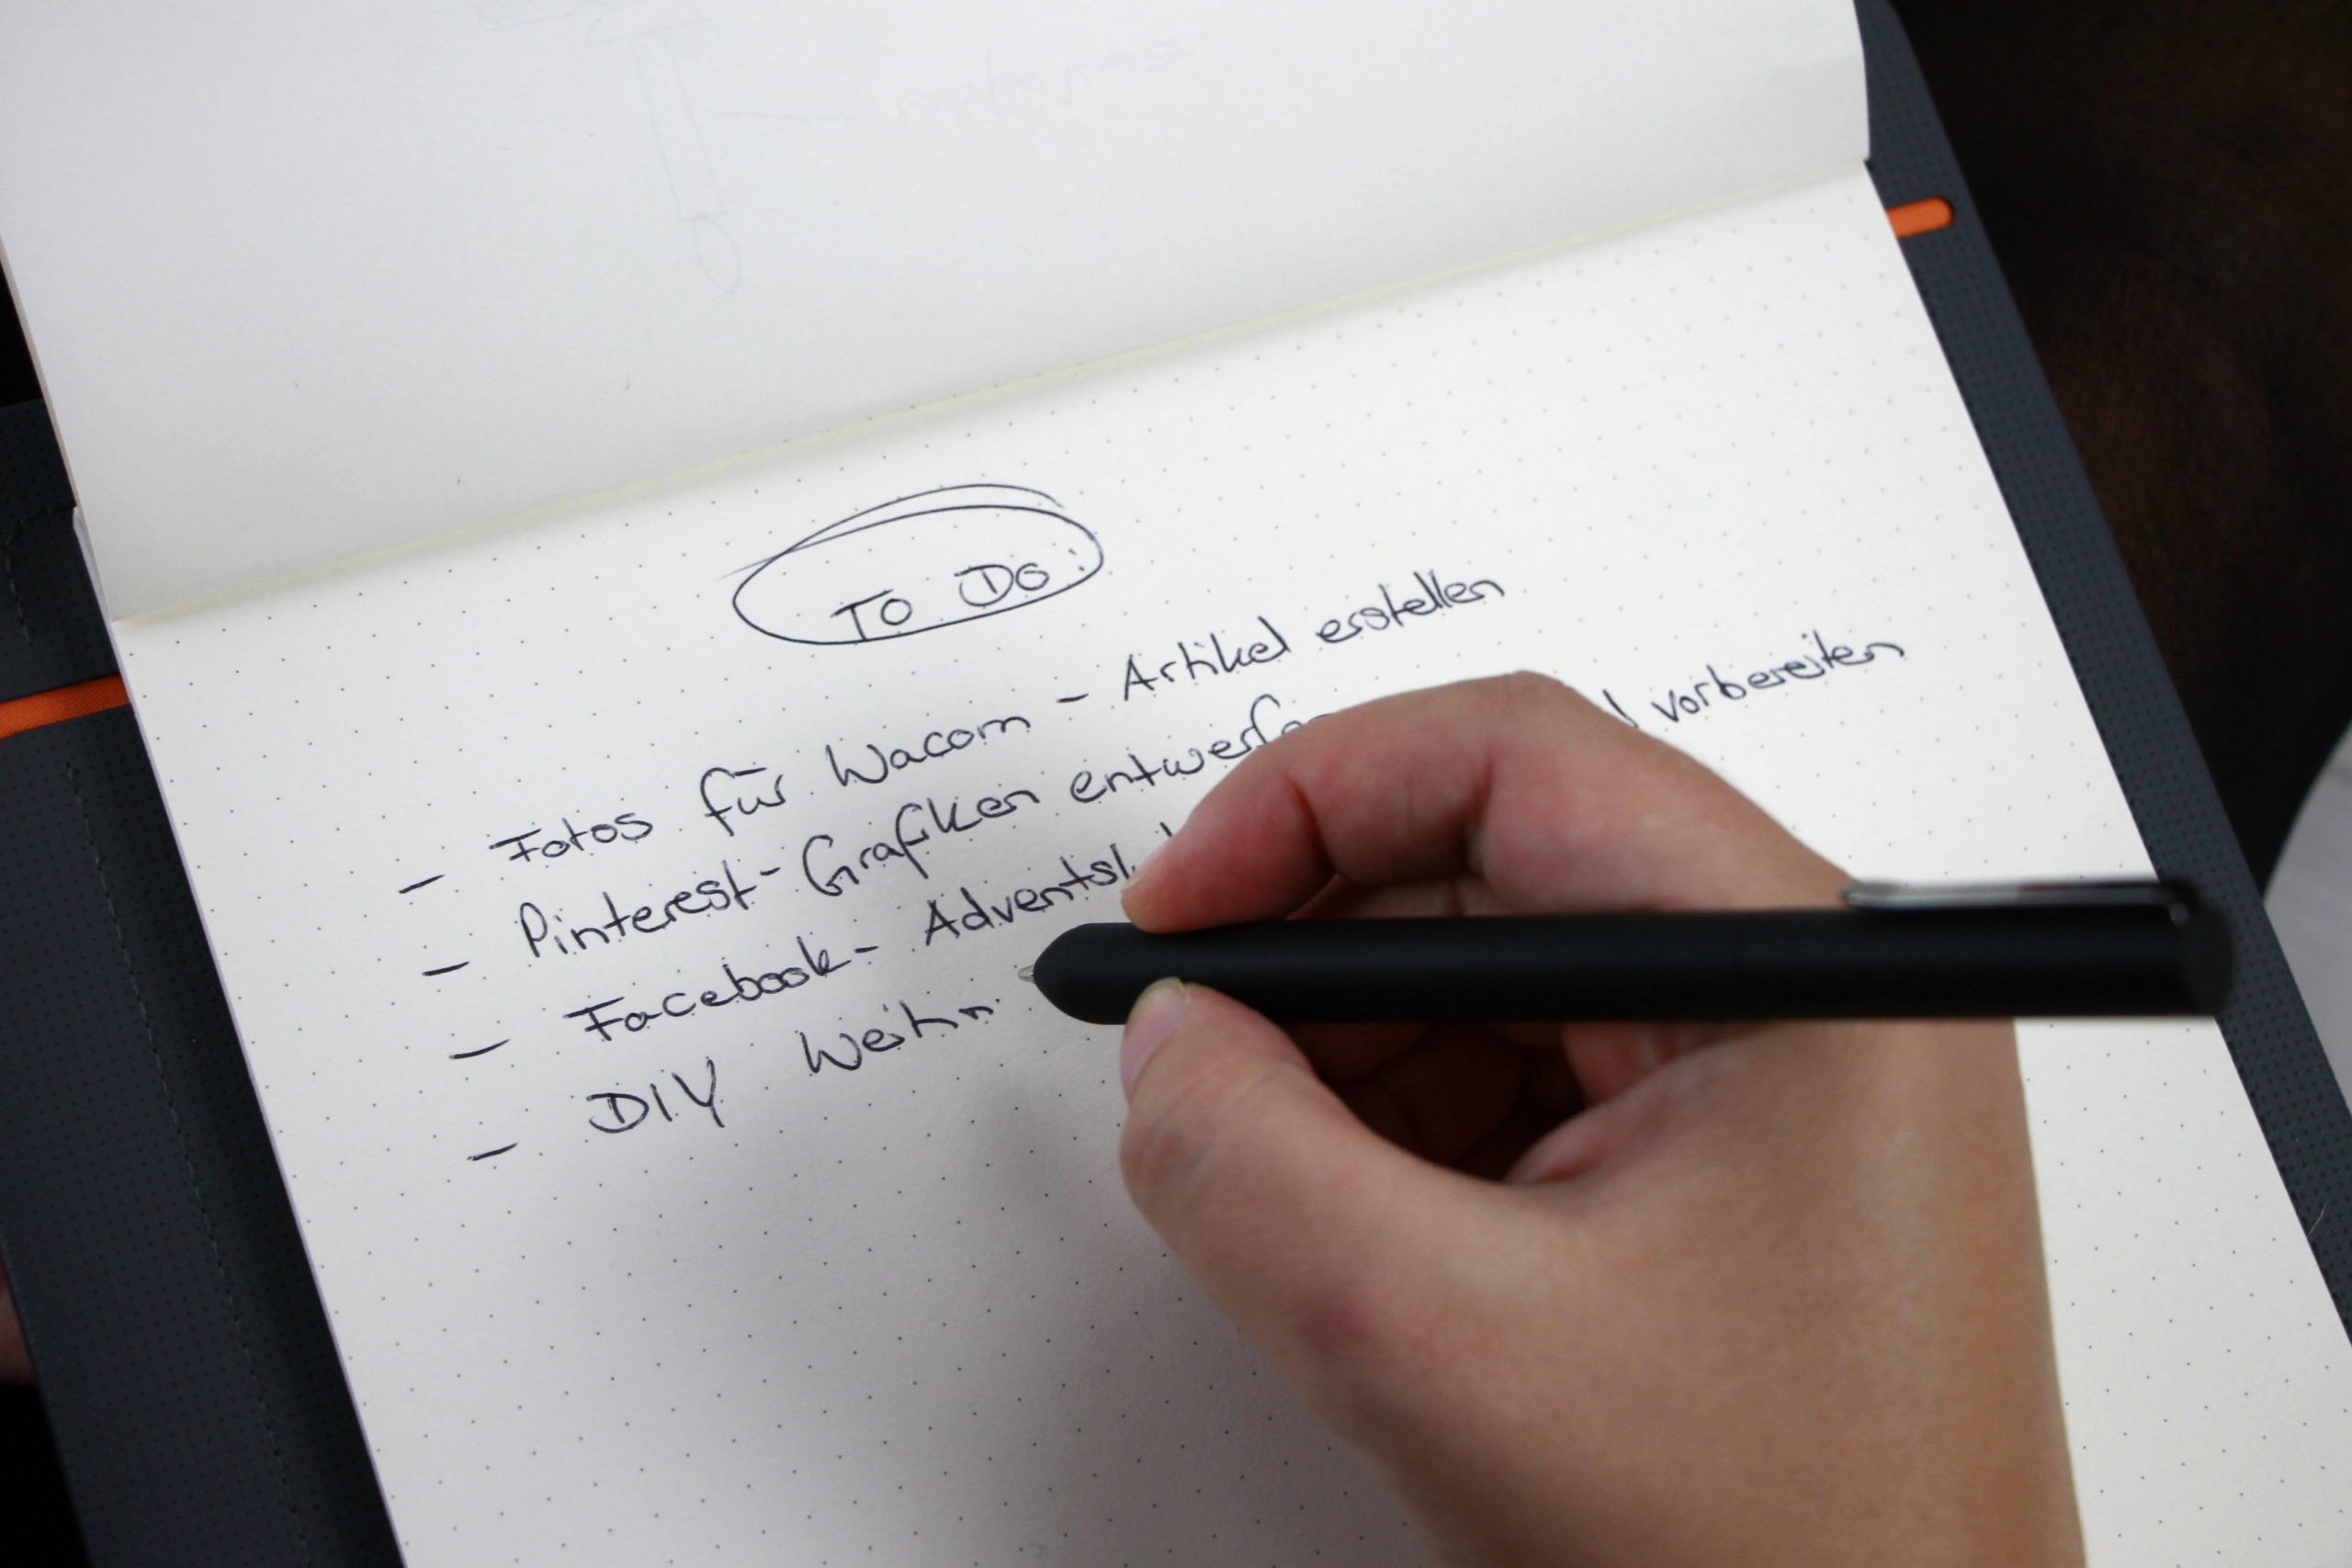 To Do:
- Fotos für Wacom - Artikel erstellen
- Pinterest - Grafiken entwerfen
- Facebook - vorbereiten
- DIY Weihn